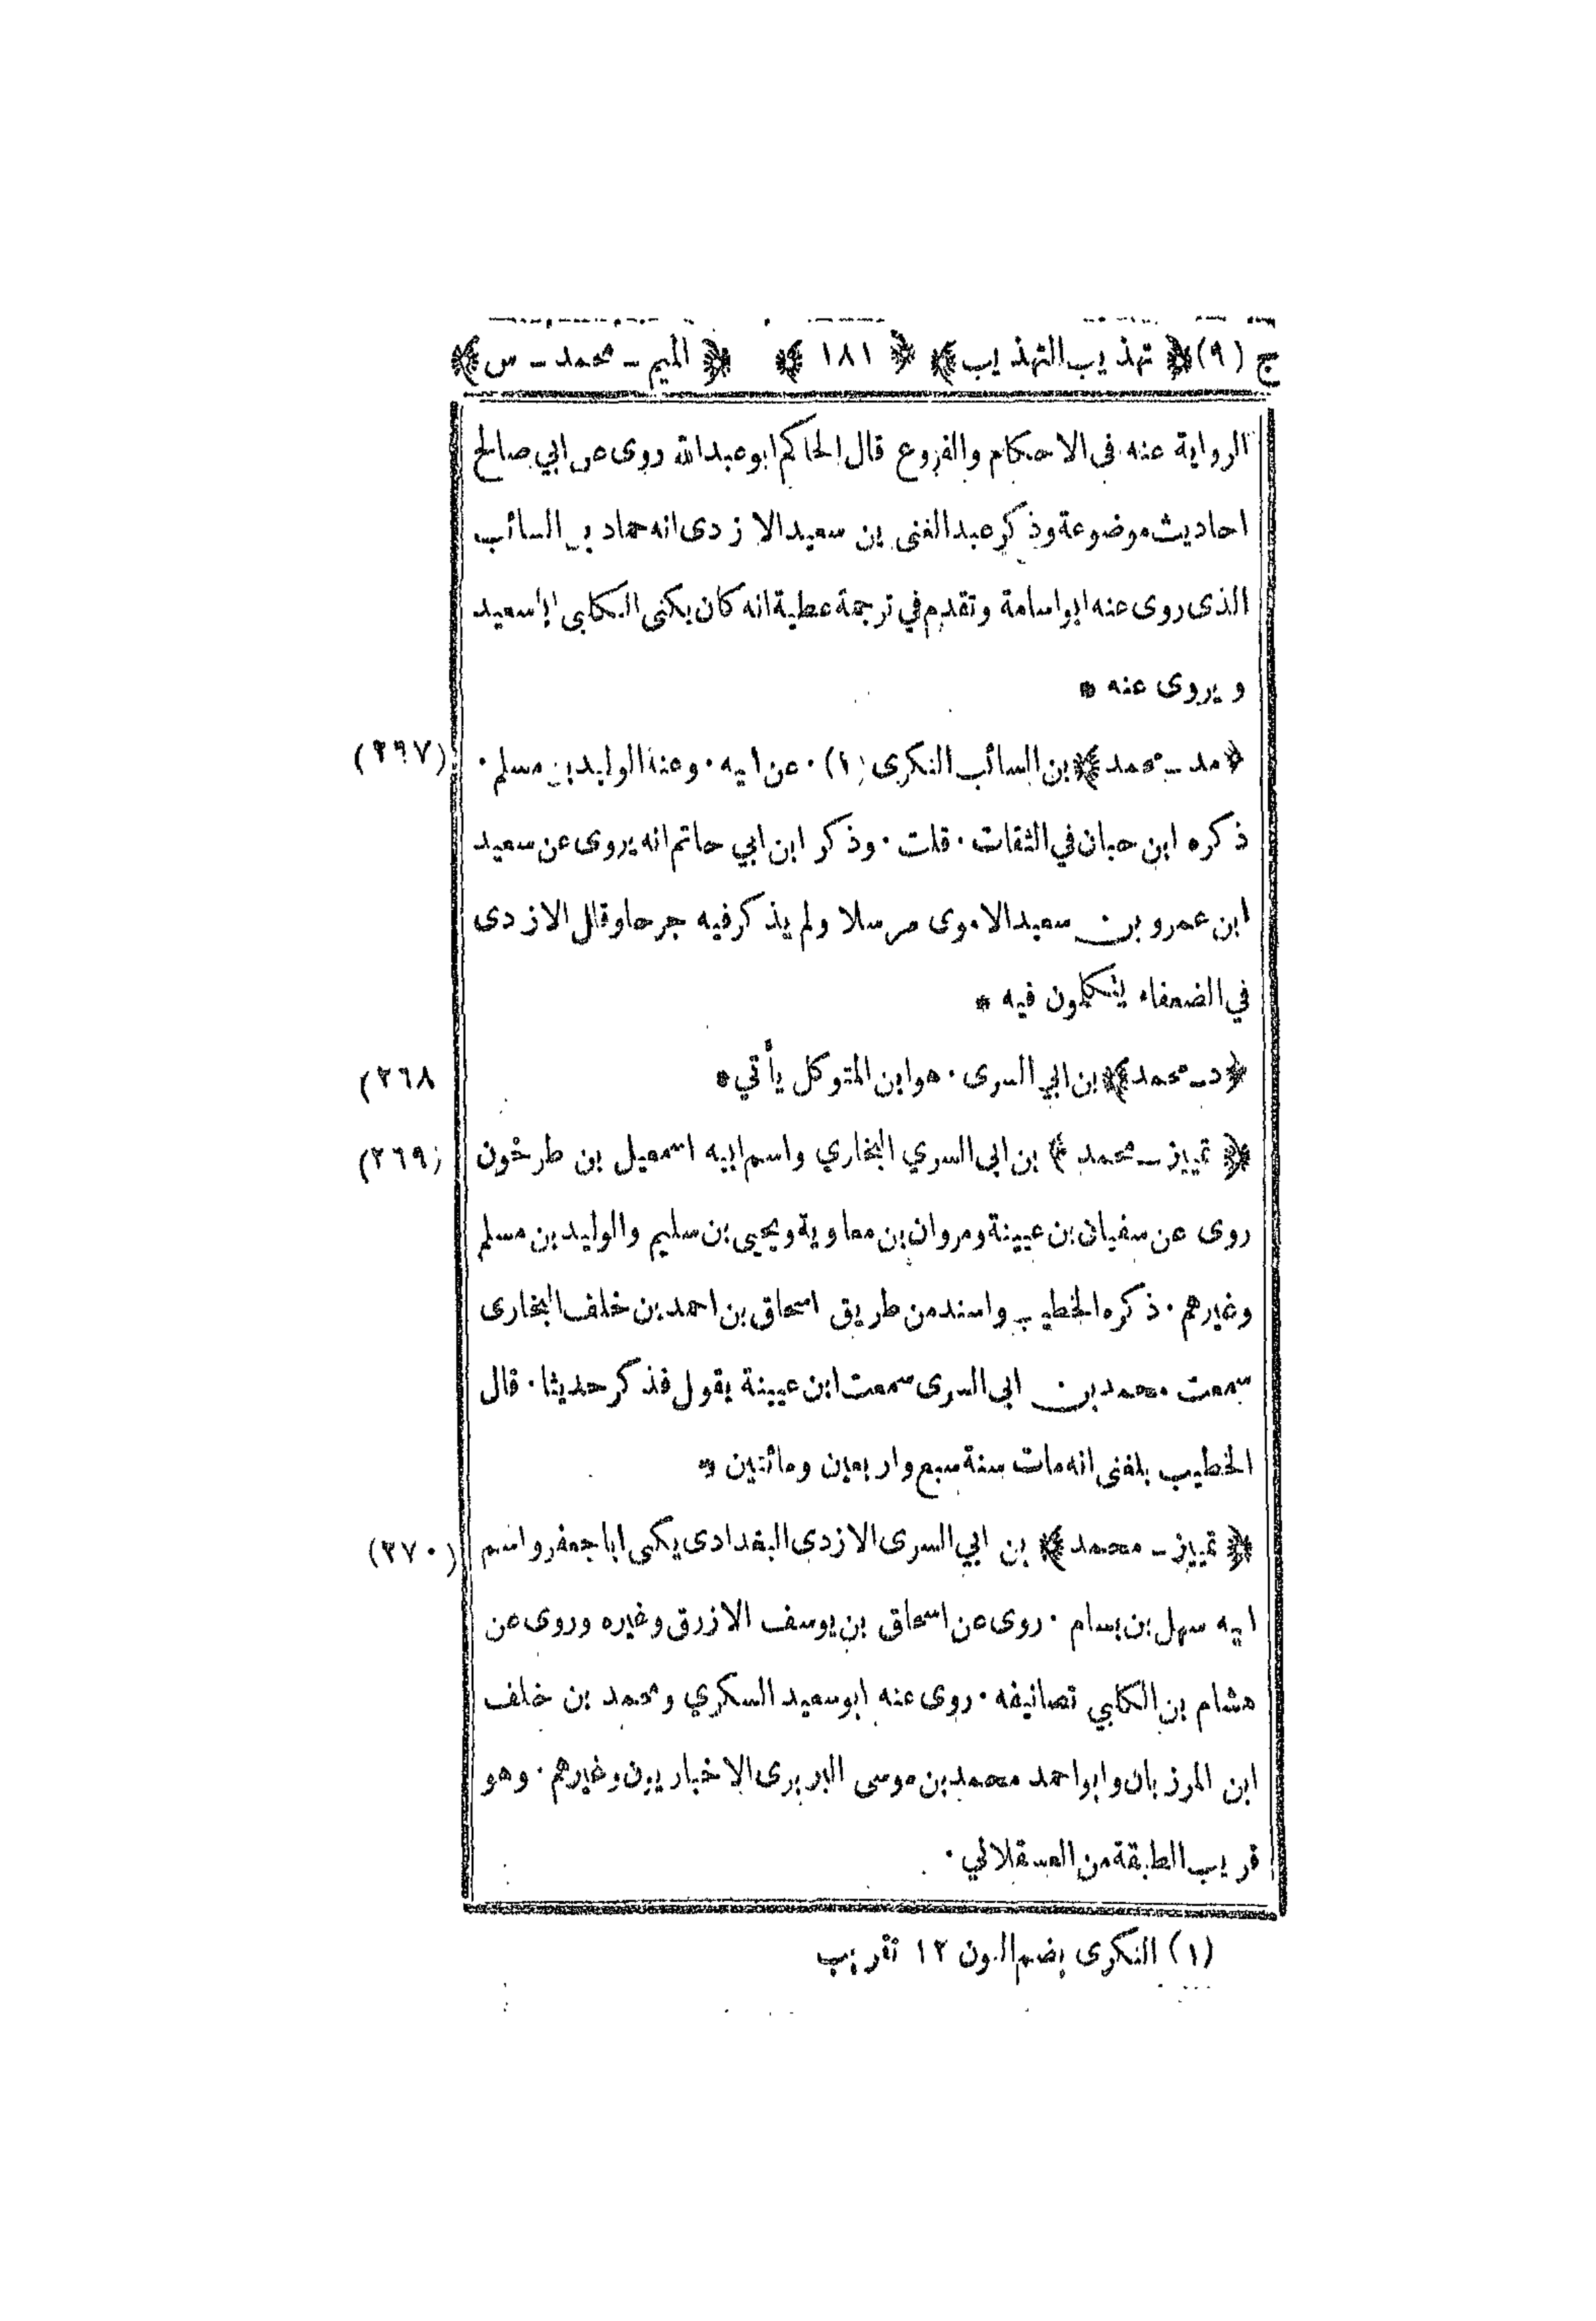 ج (٩) ﴿ تهذيب التهذيب ﴾ ﴿ ١٨١ ﴾ ﴿ الميم ـ محمد ـ س ﴾
الرواية عنه فى الاحكام والفروع قال الحاكم ابو عبد الله روى عن ابي صالح
احاديث موضوعة وذكره عبد الغنى بن سعيد الازدى انه حماد بن السائب
الذى روى عنه ابو اسامة وتقدم في ترجمة عطية انه كان يكنى الكلبى ابا سعيد
ويروى عنه *
﴿ مد ـ محمد ﴾ بن السائب النكرى (١) · عن ابيه · وعنه الوليد بن مسلم · (٢٦٧)
ذكره ابن حبان في الثقات · قلت · وذكر ابن ابي حاتم انه يروى عن سعيد
ابن عمرو بن سعيد الاموى مرسلا ولم يذكر فيه جرحا وقال الازدى
في الضعفاء يتكلمون فيه *
﴿ د ـ محمد ﴾ بن ابي السرى · هو ابن المتوكل يأتي * (٢٦٨
﴿ تمييز ـ محمد ﴾ بن ابى السري البخاري واسم ابيه اسمعيل بن طرخون (٢٦٩)
روى عن سفيان بن عيينة ومروان بن معاوية ويحيى بن سليم والوليد بن مسلم
وغيرهم · ذكره الخطيب واسند من طريق اسحاق بن احمد بن خلف البخارى
سمعت محمد بن ابى السرى سمعت ابن عيينة يقول فذكر حديثا · قال
الخطيب بلغنى انه مات سنة سبع واربعين ومائتين *
﴿ تمييز ـ محمد ﴾ بن ابي السرى الازدى البغدادى يكنى ابا جعفر واسم (٢٧٠)
ابيه سهل بن بسام · روى عن اسحاق بن يوسف الازرق وغيره وروى عن
هشام بن الكلبي تصانيفه · روى عنه ابو سعيد السكري ومحمد بن خلف
ابن المرزبان وابو احمد محمد بن موسى البربرى الاخباريون وغيرهم · وهو
قريب الطبقة من العسقلاني ·
(١) النكرى بضم النون ١٢ تقريب